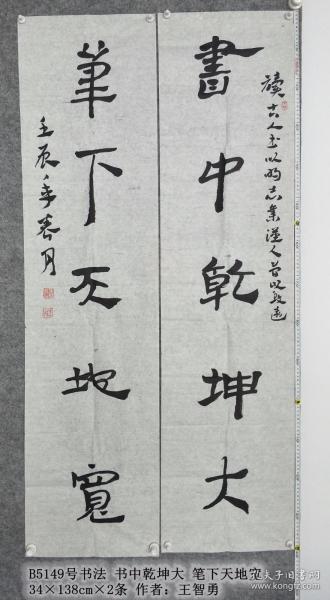 書中乾坤大
讀古人書以明志業漢人
筆下天地寬
壬辰年春月
B5149号书法 书中乾坤大 笔下天地宽
34×138cm×2条 作者：王智勇